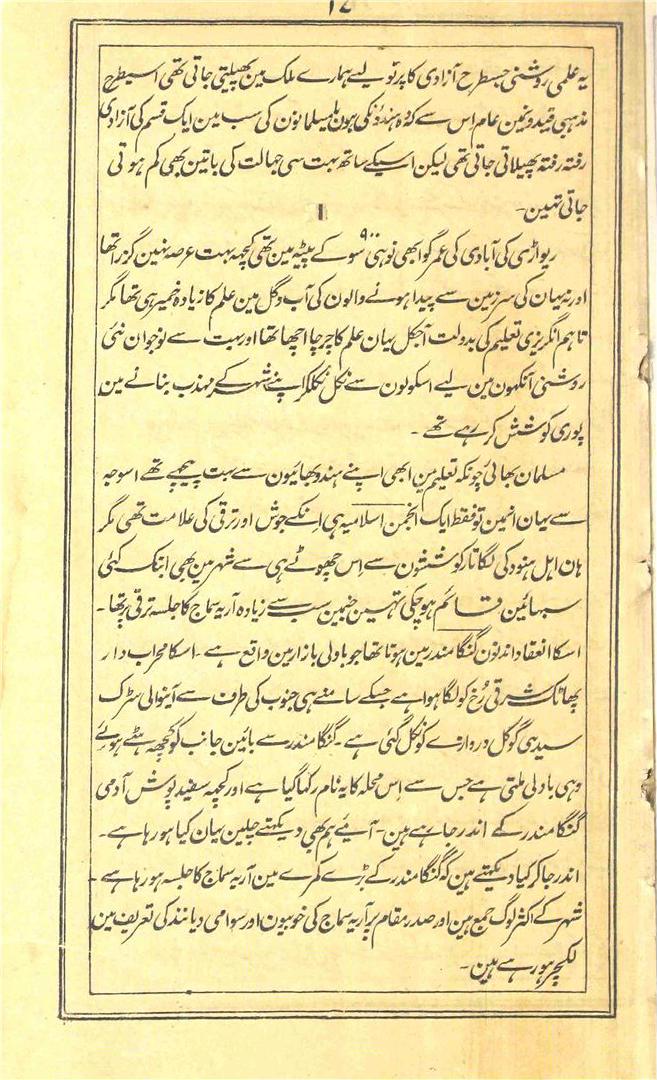 ۱۷
یہ علمی روشنی جسطرح آزادی کا پرتو لیے ہمارے ملک مین پھیلتی جاتی تھی اسیطرح
مذہبی قیدونمین عام اس سے کہ وہ ہندؤنکی ہون یا مسلمانوٗن کی سب مین ایک قسم کی آزادی
رفتہ رفتہ پھیلاتی جاتی تھی لیکن اسیکے ساتھ بہت سی جہالت کی باتین بھی کم ہوتی
جاتی تہین۔
ریواڑی کی آبادی کی عمر گو ابھی نوہی ۹۰۰ سو کے پیٹہ مین تھی کچہہ بہت عرصہ نہین گزرا تھا
اور نہ یہان کی سرزمین سے پیدا ہونے والون کی آب و گل مین علم کا زیادہ خمیر ہی تھا مگر
تاہم انگریزی تعلیم کی بدولت آجکل یہان علم کا چرچا اچھا تھا اور بہت سے نوجوان نئی
روشنی آنکہون مین لیے اسکولون سے نکل نکلکر اپنے شہر کے مہذب بنانے مین
پوری کوشش کر رہے تھے ۔
مسلمان بھائی چونکہ تعلیم مین ابھی اپنے ہندو بھائیون سے بہت پیچہے تھے اسوجہ
سے یہان انہین تو فقط ایک انجمن اسلامیہ ہی انکے جوش اور ترقی کی علامت تھی مگر
ہان اہل ہنود کی لگاتار کوششون سے اس چھوٹے ہی سے شہر مین بھی ابتک کئی
سبہائین قائم ہوچکی تہین جنمین سب سے زیادہ آریہ سماج کا جلسہ ترقی پر تھا۔
اسکا انعقاد اندنون گنگا مندر مین ہوتا تھا جو باولی بازار مین واقع ہے ۔ اسکا محراب دار
پھاٹک شرقی رُخ کو لگا ہوا ہے جسکے سامنے ہی جنوب کی طرف سے آنیوالی سڑک
سیدہی گوکل دروازے کو نکل گئی ہے ۔ گنگا مندر سے بائین جانب کو کچہہ ہٹے ہوئے
وہی باولی ملتی ہے جس سے اس محلہ کا یہ نام رکہا گیا ہے اور کچہہ سفید پوش آدمی
گنگا مندر کے اندر جا رہے ہین۔ آیئے ہم بھی دیکہتے چلین یہان کیا ہو رہا ہے۔
اندر جا کر کیا دیکہتے ہین کہ گنگا مندر کے بڑے کمرے مین آریہ سماج کا جلسہ ہو رہا ہے ۔
شہر کے اکثر لوگ جمع ہین اور صدر مقام پر آریہ سماج کی خوبیون اور سوامی دیانند کی تعریف مین
لکچر ہو رہے ہین۔